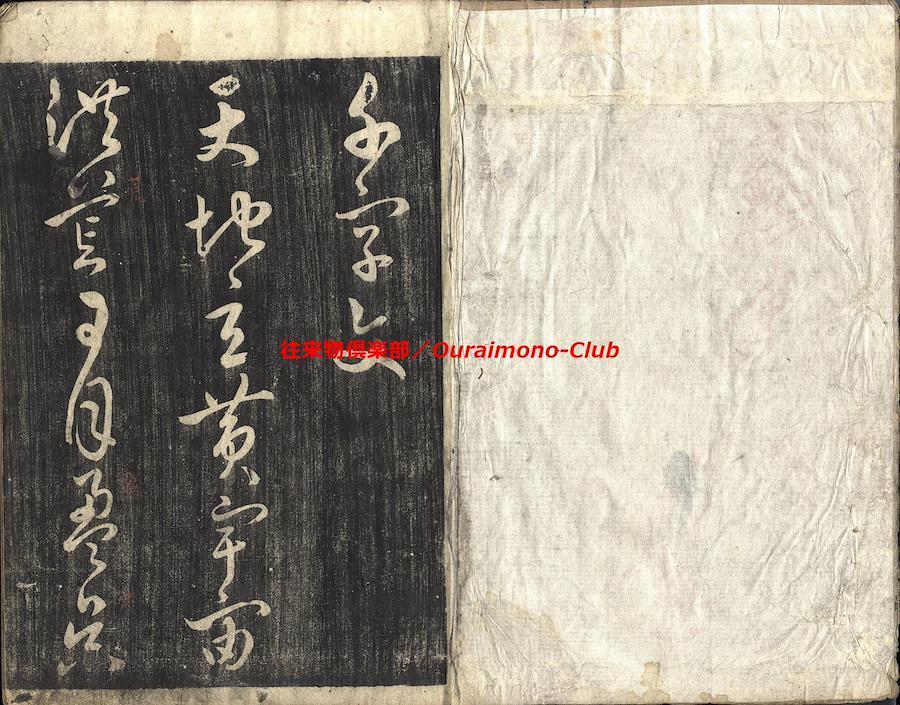 千字文
天地玄黄宇宙
洪荒日月盈昃
往来物倶楽部／Ouraimono-Club